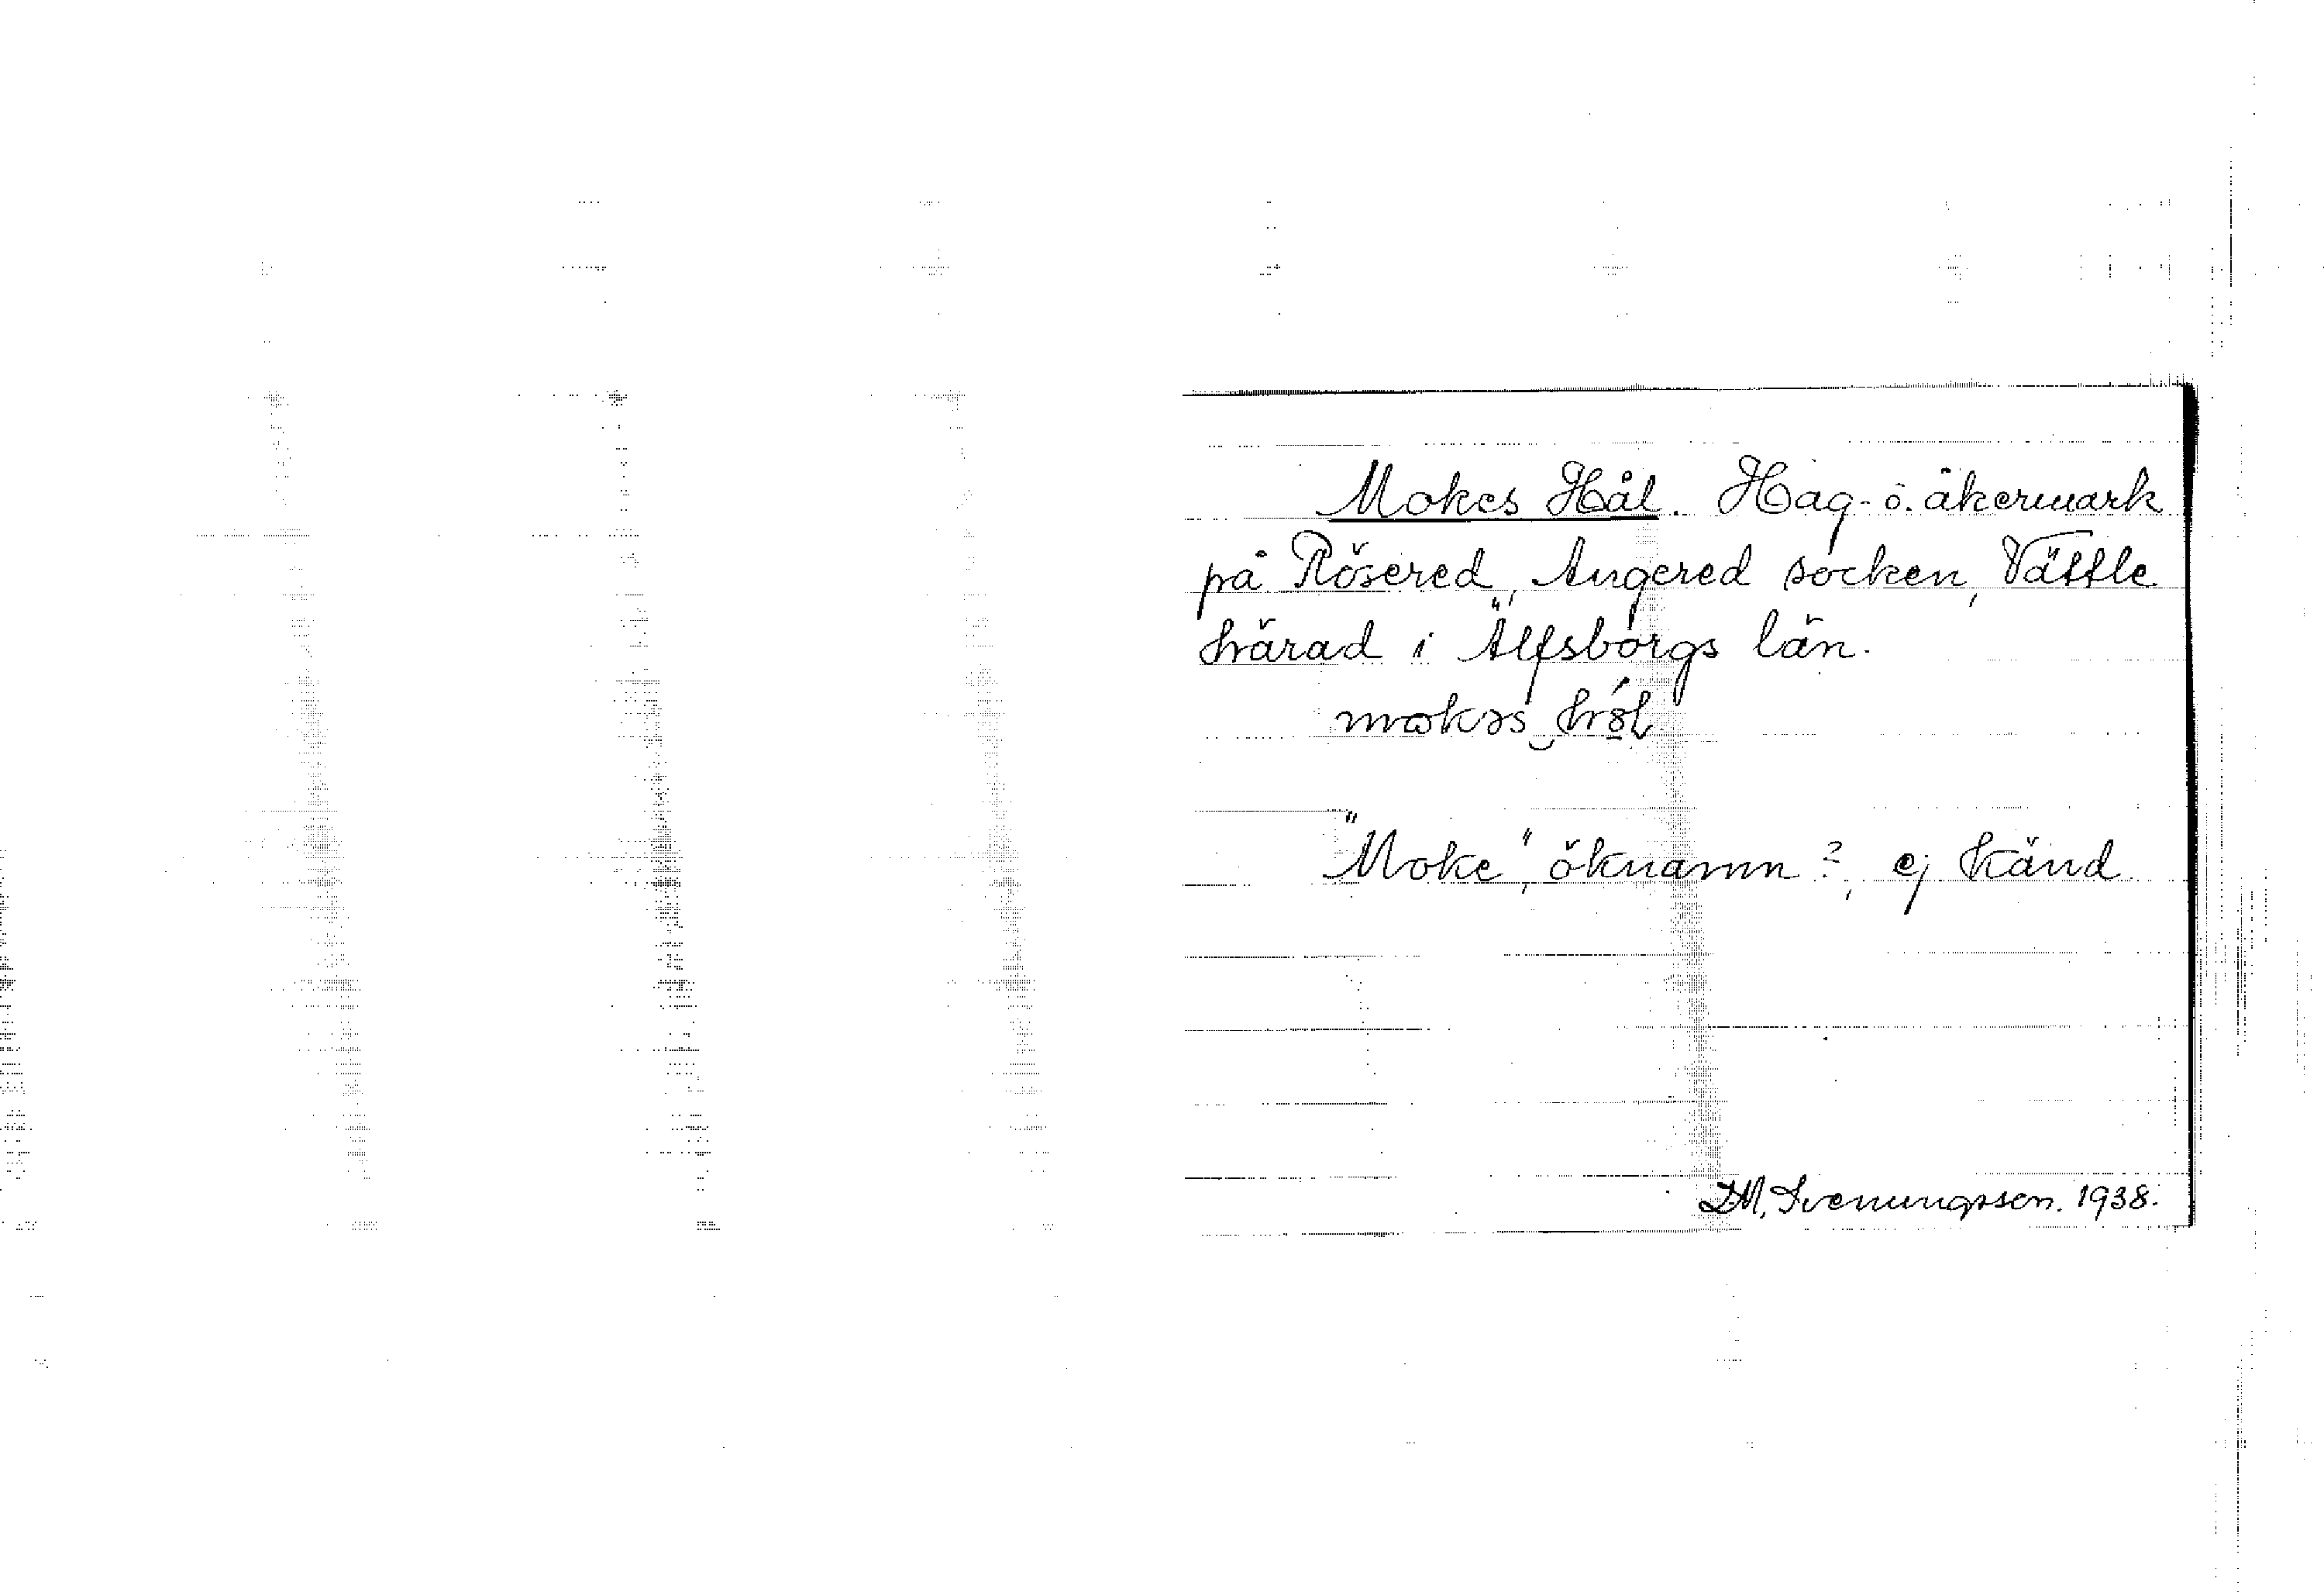 Mokes Hål. Hag- o. åkermark
på Rösered, Angered socken, Vättle
härad i Älfsborgs län.
"Moke", öknamn?, ej känd
D.M. Svenungsson. 1938.